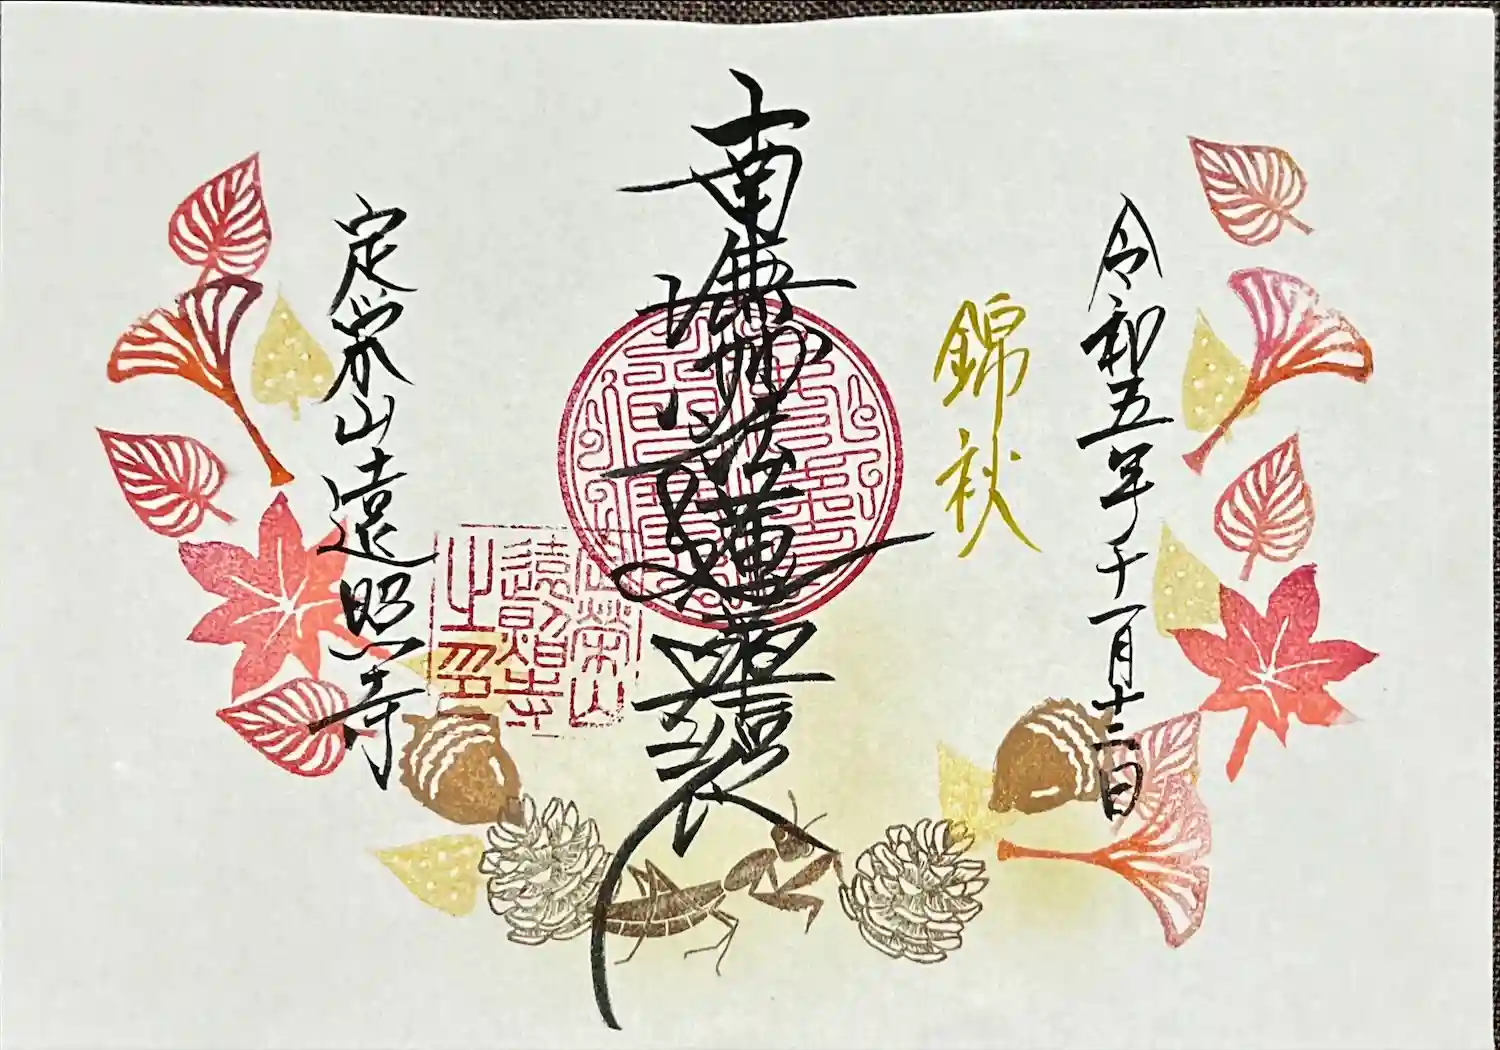 令和五年十一月十三日
錦秋
南無妙法蓮華経
定栄山遠照寺
定榮山
遠照寺
之印